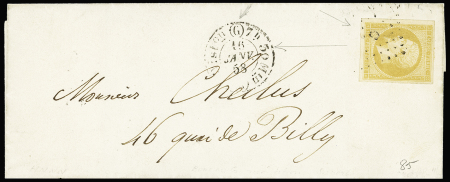 (G)
16
JANV
58
Monsieur Challus
46 quai de Billy
85